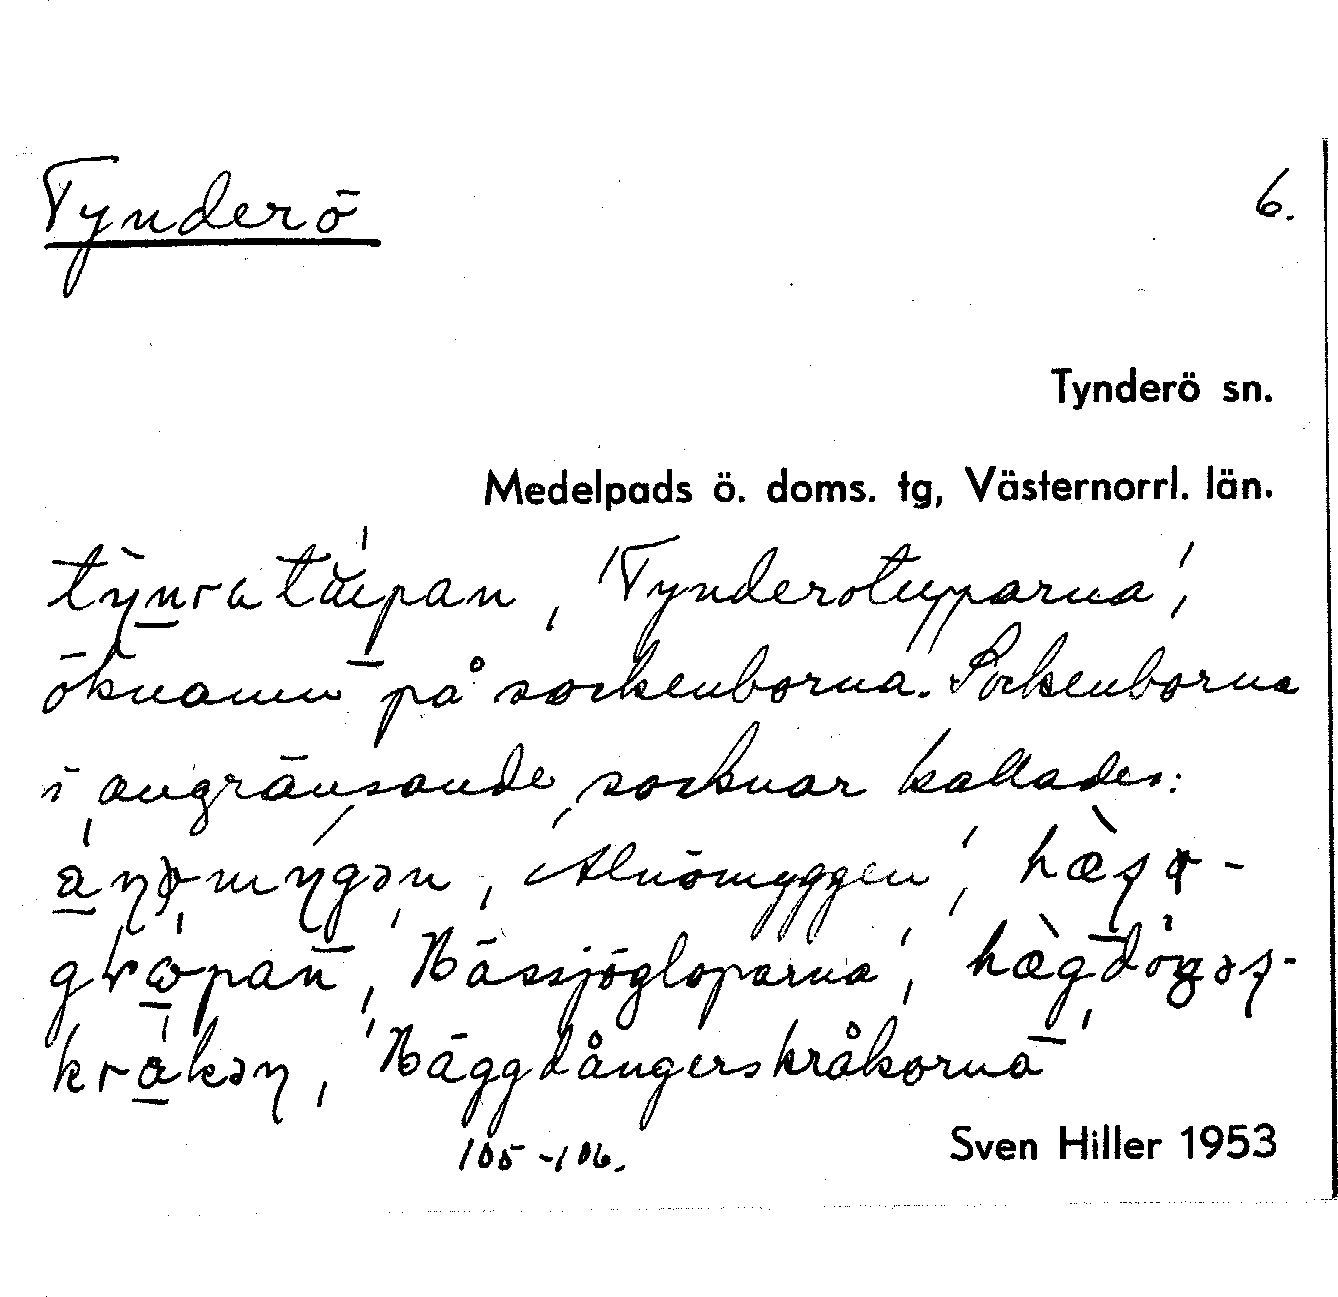 Tynderö
6.
Tynderö sn.
Medelpads ö. doms. tg, Västernorrl. län.
'Tynderötupparna',
öknamn på sockenborna. Sockenborna
i angränsande socknar kallades:
'Alnömyggen',
'Hässjögloparna',
'Häggdångerskråkorna'
105-106.
Sven Hiller 1953